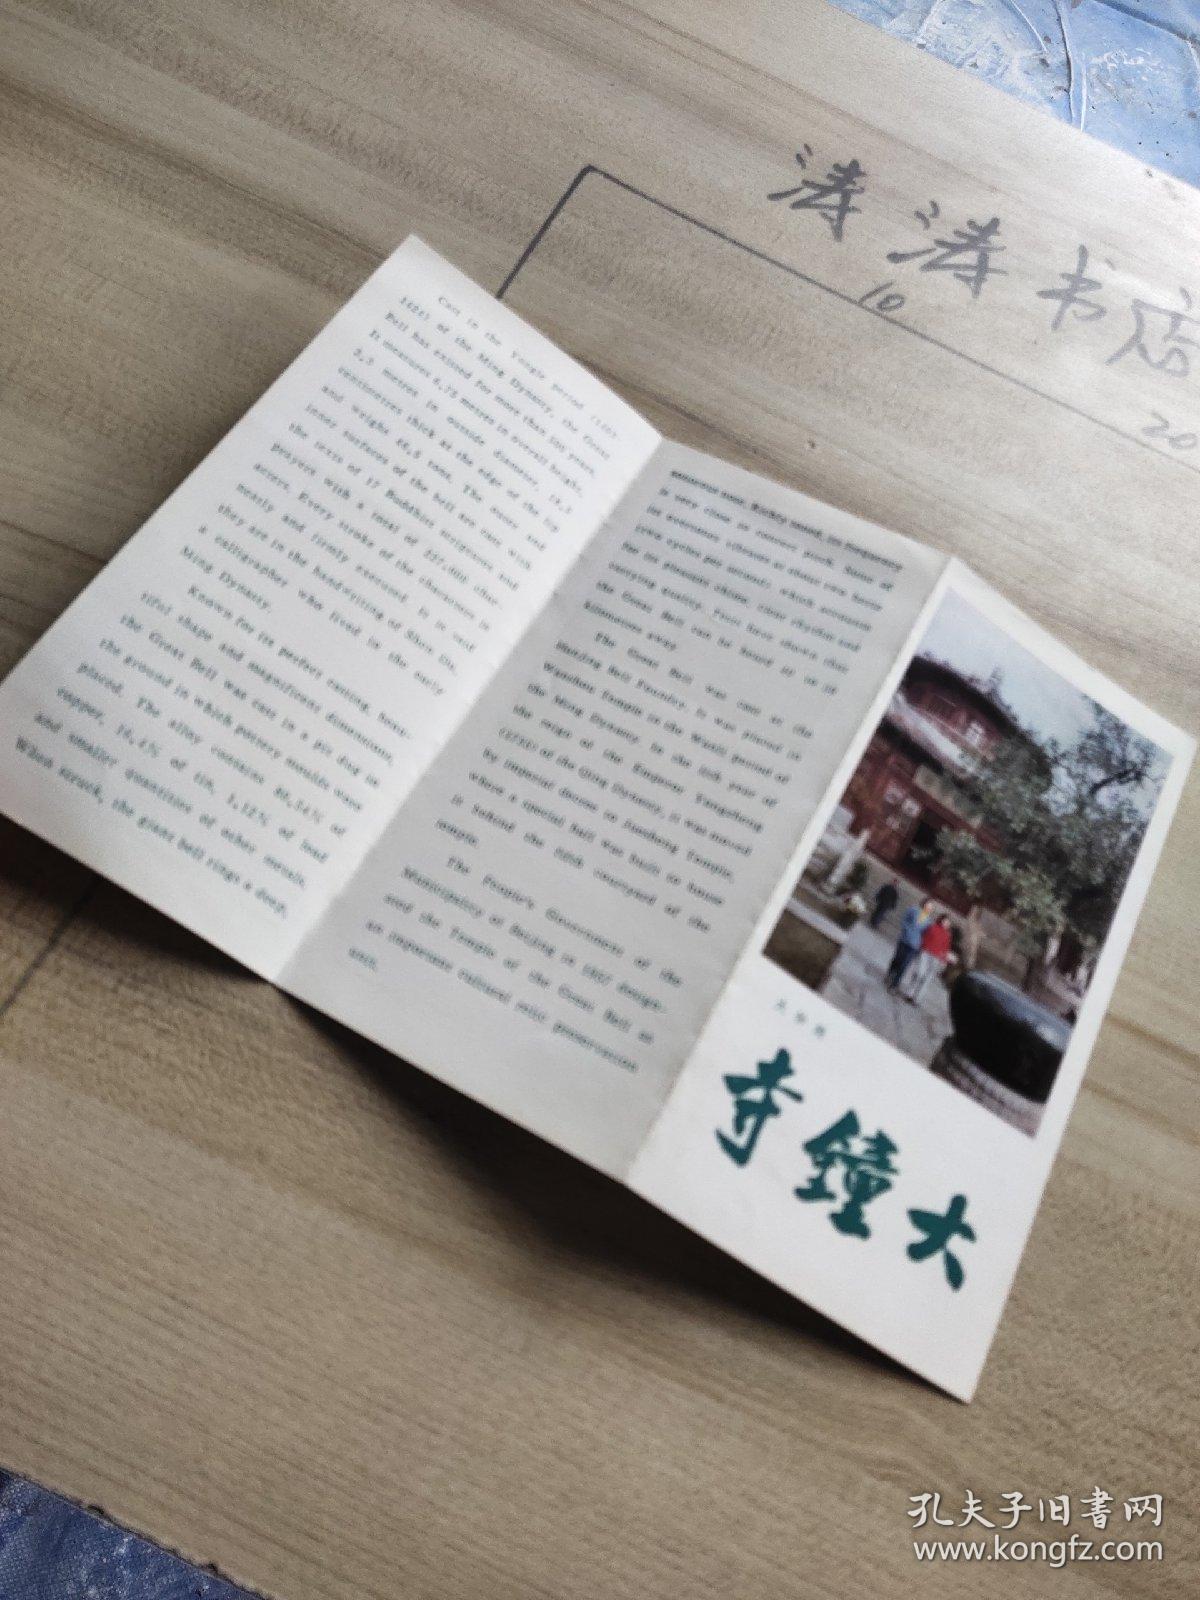 涛涛书店
10
20
Cast in the Yongle period (1403-
1424) of the Ming Dynasty, the Great
Bell has existed for more than 500 years.
It measures 6.75 metres in overall height,
3.3 metres in outside diameter, 18.5
centimetres thick at the edge of the lip
and weighs 46.5 tons. The outer and
inner surfaces of the bell are cast with
the texts of 17 Buddhist scriptures and
prayers with a total of 227,000 char-
acters. Every stroke of the characters is
neatly and firmly executed. It is said
they are in the handwriting of Shen Du,
a calligrapher who lived in the early
Ming Dynasty.
Known for its perfect casting, beau-
tiful shape and magnificent dimensions,
the Great Bell was cast in a pit dug in
the ground in which pottery moulds were
placed. The alloy contains 80.54% of
copper, 16.4% of tin, 1.12% of lead
and smaller quantities of other metals.
When struck, the giant bell rings a deep,
sonorous tone. Richly toned, its frequency
is very close to concert pitch. Some of
its overtones vibrates at about two hertz
(two cycles per second), which accounts
for its pleasant chime, clear rhythm and
carrying quality. Tests have shown that
the Great Bell can be heard
kilometres away.
The Great Bell was cast at the
Hanjing Bell Foundry. It was placed in
Wanshou Temple in the Wanli period of
the Ming Dynasty. In the 11th year of
the reign of the Emperor Yongzheng
(1733) of the Qing Dynasty, it was moved
by imperial decree to Juesheng Temple,
where a special hall was built to house
it behind the fifth courtyard of the
temple.
The People's Government of the
Municipality of Beijing in 1957 design-
ated the Temple of the Great Bell as
an important cultural relic preservation
unit.
大鐘寺
孔夫子旧书网
www.kongfz.com